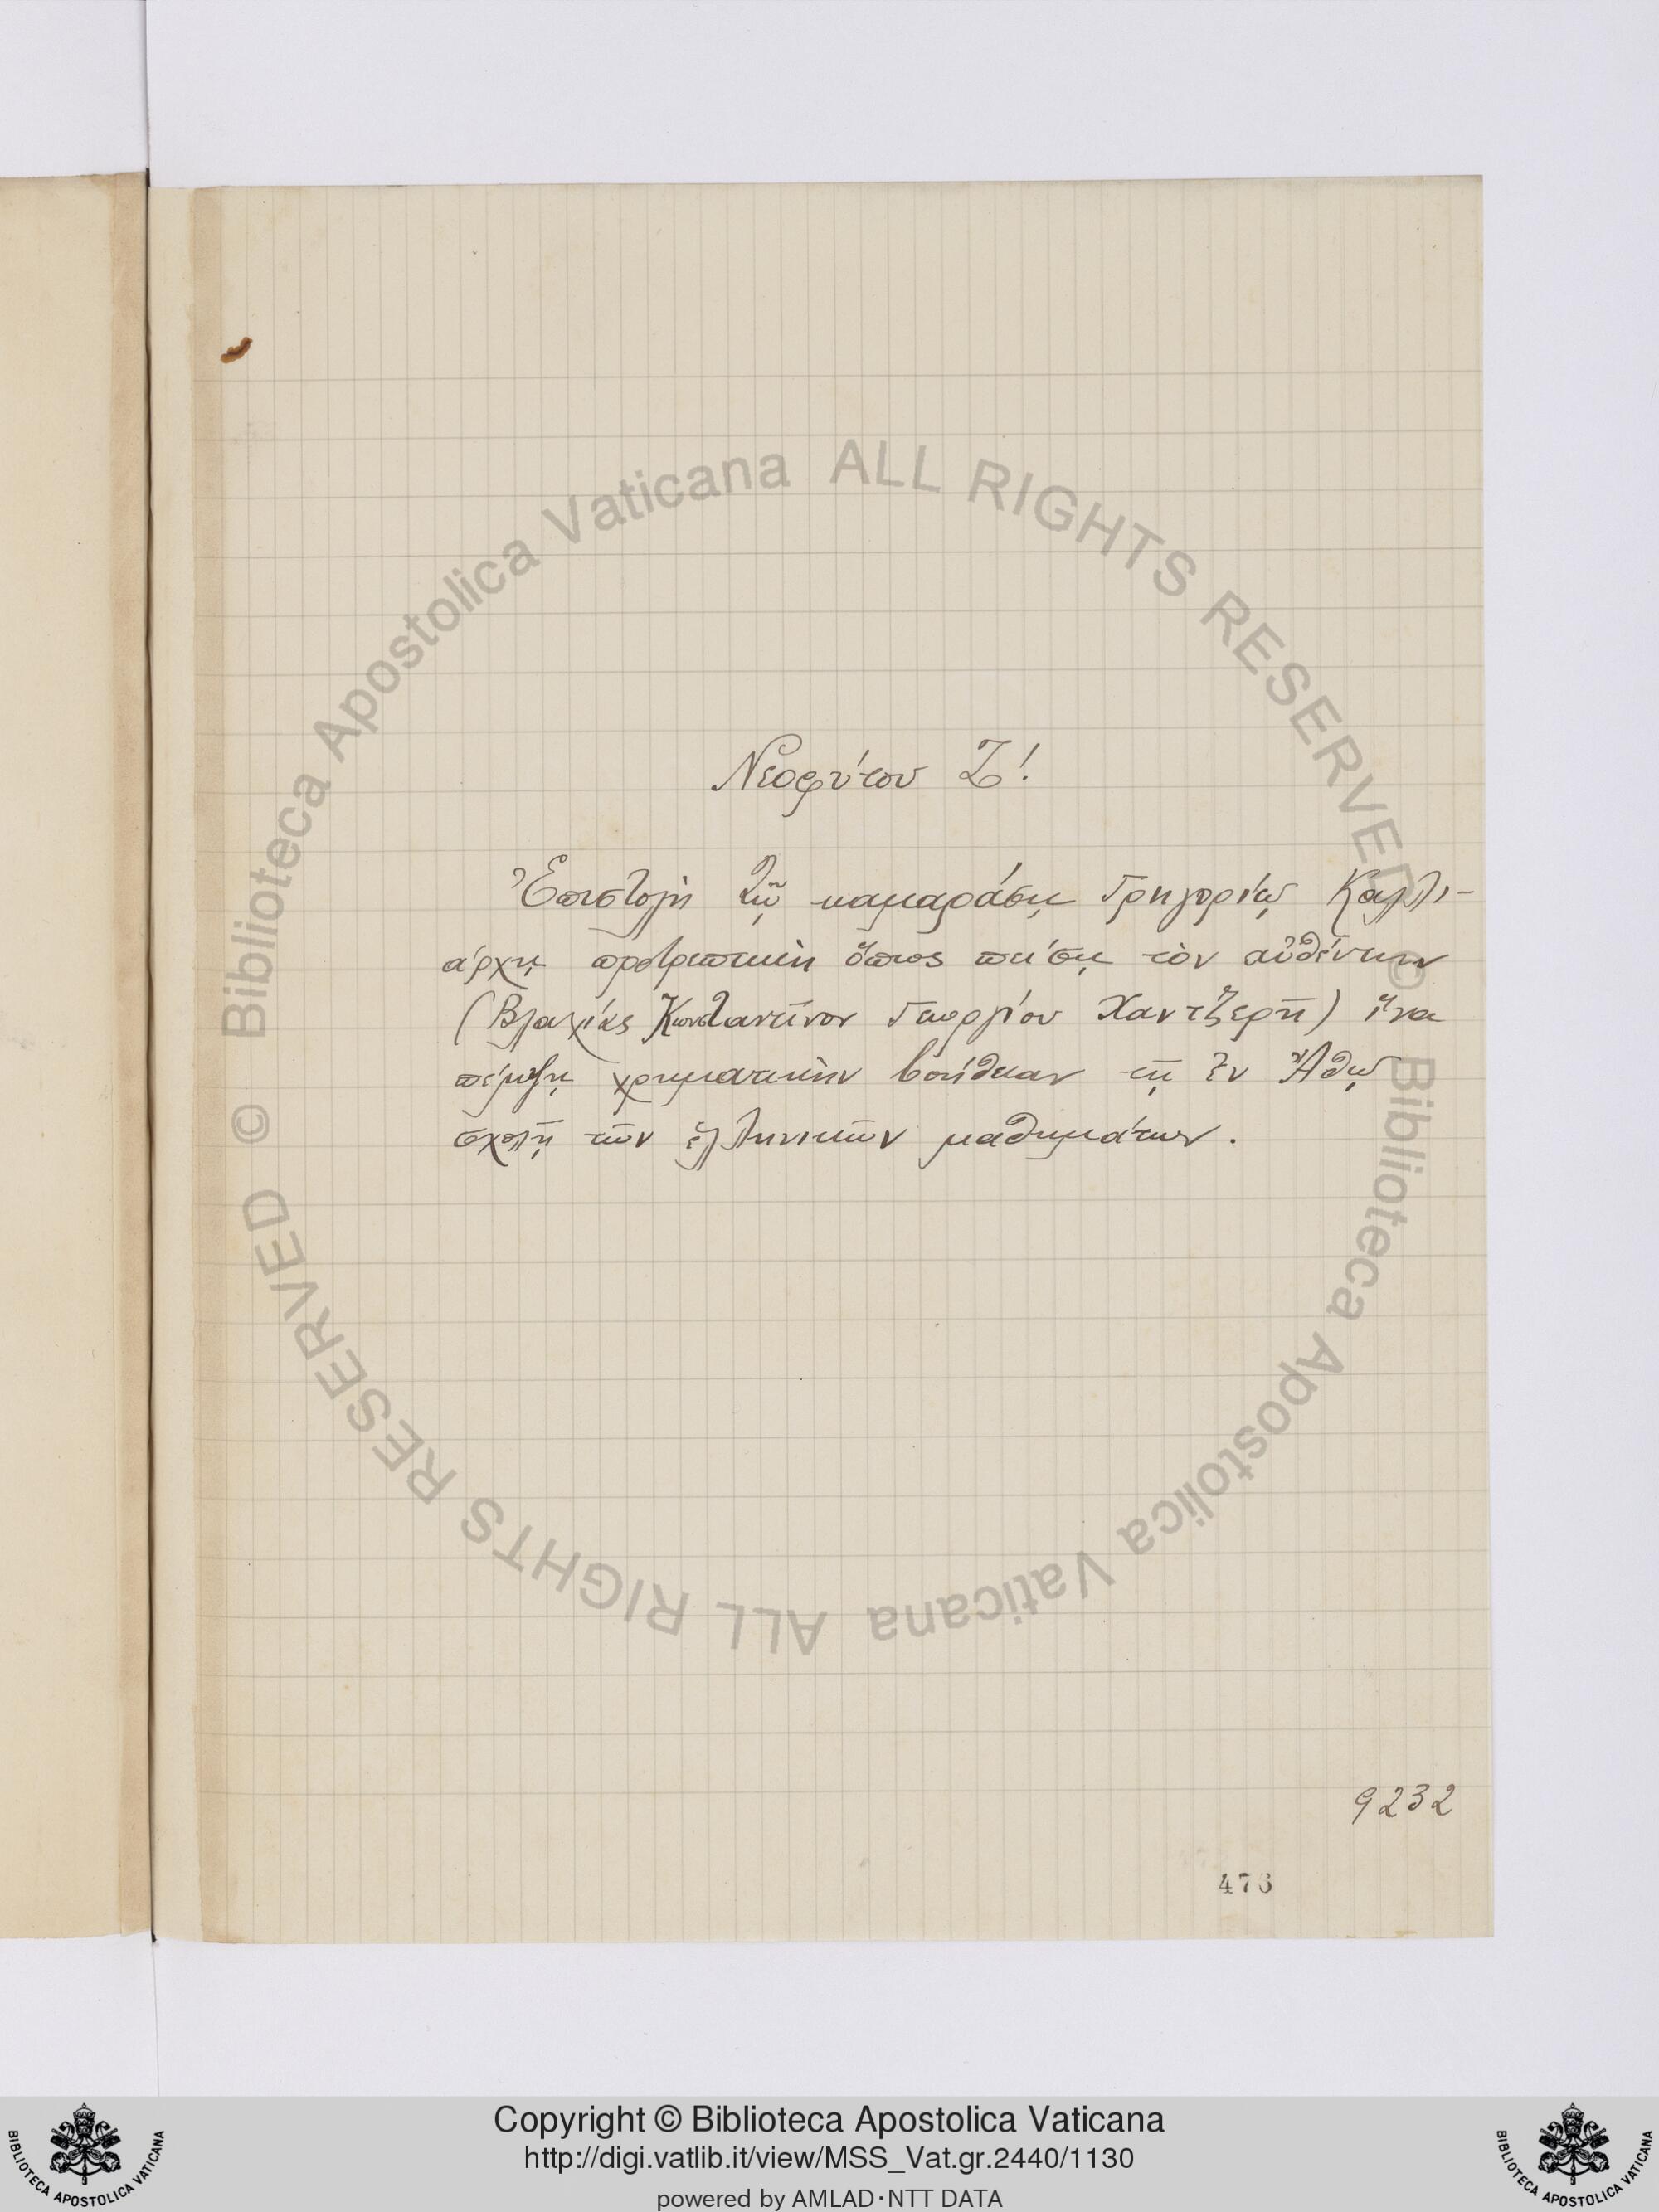 Νεοφύτου Ζ΄.
Ἐπιστολὴ τῷ καμαράσῃ Γρηγορίῳ Καλλι-
άρχῃ προτρεπτικὴ ὅπως πείσῃ τὸν αὐθέντην
(Βλαχίας Κωνσταντῖνον Γεωργίου Χαντζερῆ) ἵνα
πέμψῃ χρηματικὴν βοήθειαν τῇ ἐν Ἄθῳ
σχολῇ τῶν ἑλληνικῶν μαθημάτων.
9232
476
© Biblioteca Apostolica Vaticana ALL RIGHTS RESERVED
© Biblioteca Apostolica Vaticana ALL RIGHTS RESERVED
Copyright © Biblioteca Apostolica Vaticana
http://digi.vatlib.it/view/MSS_Vat.gr.2440/1130
powered by AMLAD·NTT DATA
BIBLIOTECA APOSTOLICA VATICANA
BIBLIOTECA APOSTOLICA VATICANA